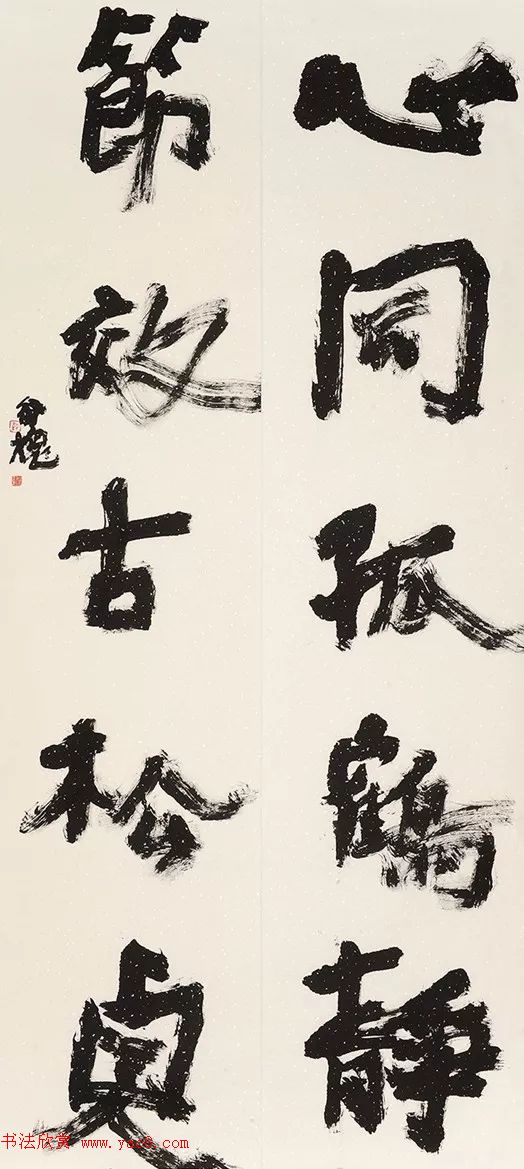 心同孤鶴静
節效古松貞
书法欣赏 www.yac8.com